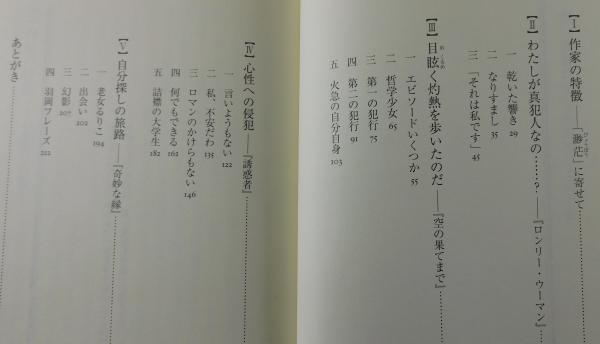 【Ⅰ】作家の特徴——「渺茫」に寄せて……………
【Ⅱ】わたしが真犯人なの……?——『ロンリー・ウーマン』……………
一 乾いた響き 29
二 なりすまし 35
三 「それは私です」 45
【Ⅲ】目眩く灼熱を歩いたのだ——『空の果てまで』……………
一 エピソードいくつか 55
二 哲学少女 65
三 第一の犯行 75
四 第二の犯行 91
五 火急の自分自身 103
【Ⅳ】心性への侵犯——『誘惑者』……………
一 言いようもない 122
二 私、不安だわ 135
三 ロマンのかけらもない 146
四 何でもできる 162
五 詰襟の大学生 182
【Ⅴ】自分探しの旅路——『奇妙な縁』……………
一 老女るりこ 194
二 出会い 202
三 幻影 207
四 羽岡フレーズ 222
あとがき……………